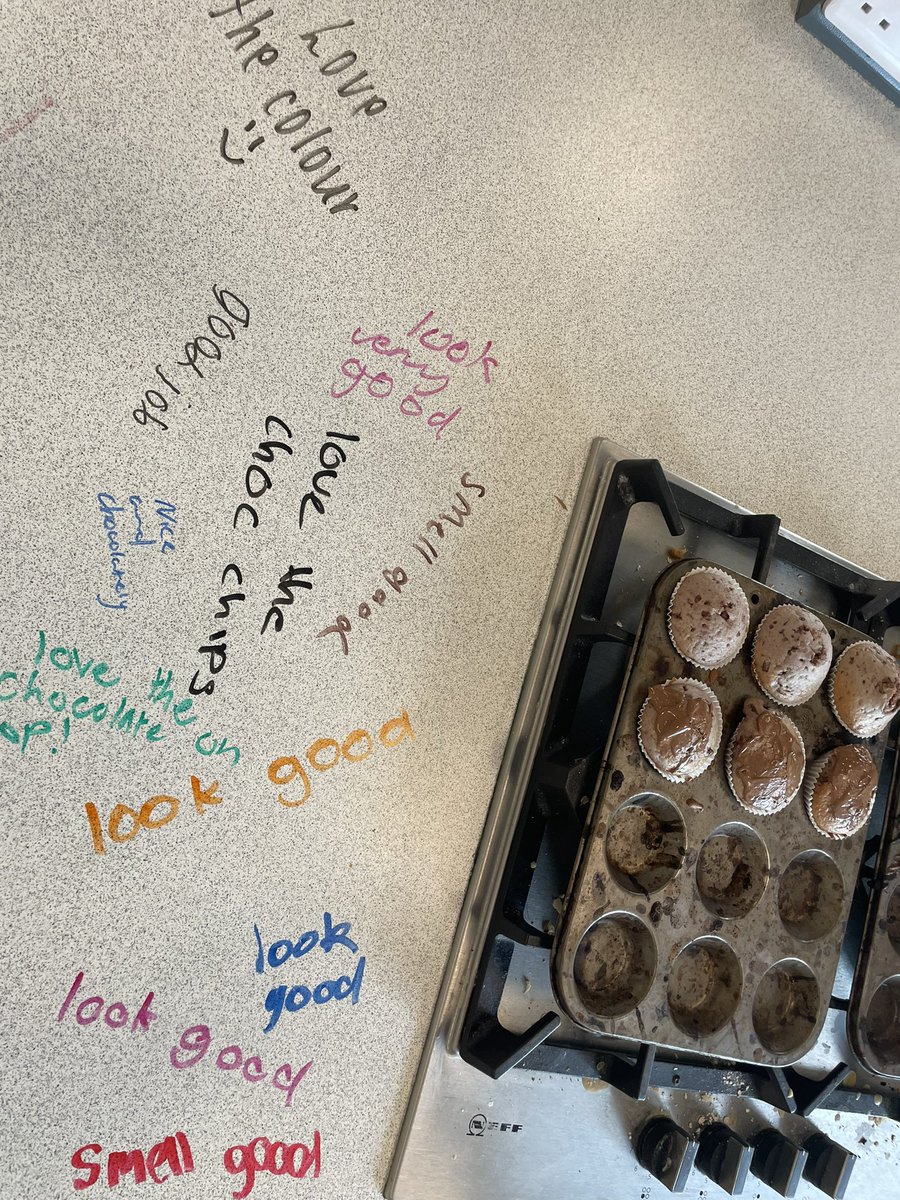 Love
the colour
:)
good job
look
very
good
love the
choc chips
smell good
Nice
and
chocolatey
love the
chocolate on
op!
look good
look
good
look good
smell goood
NEFF